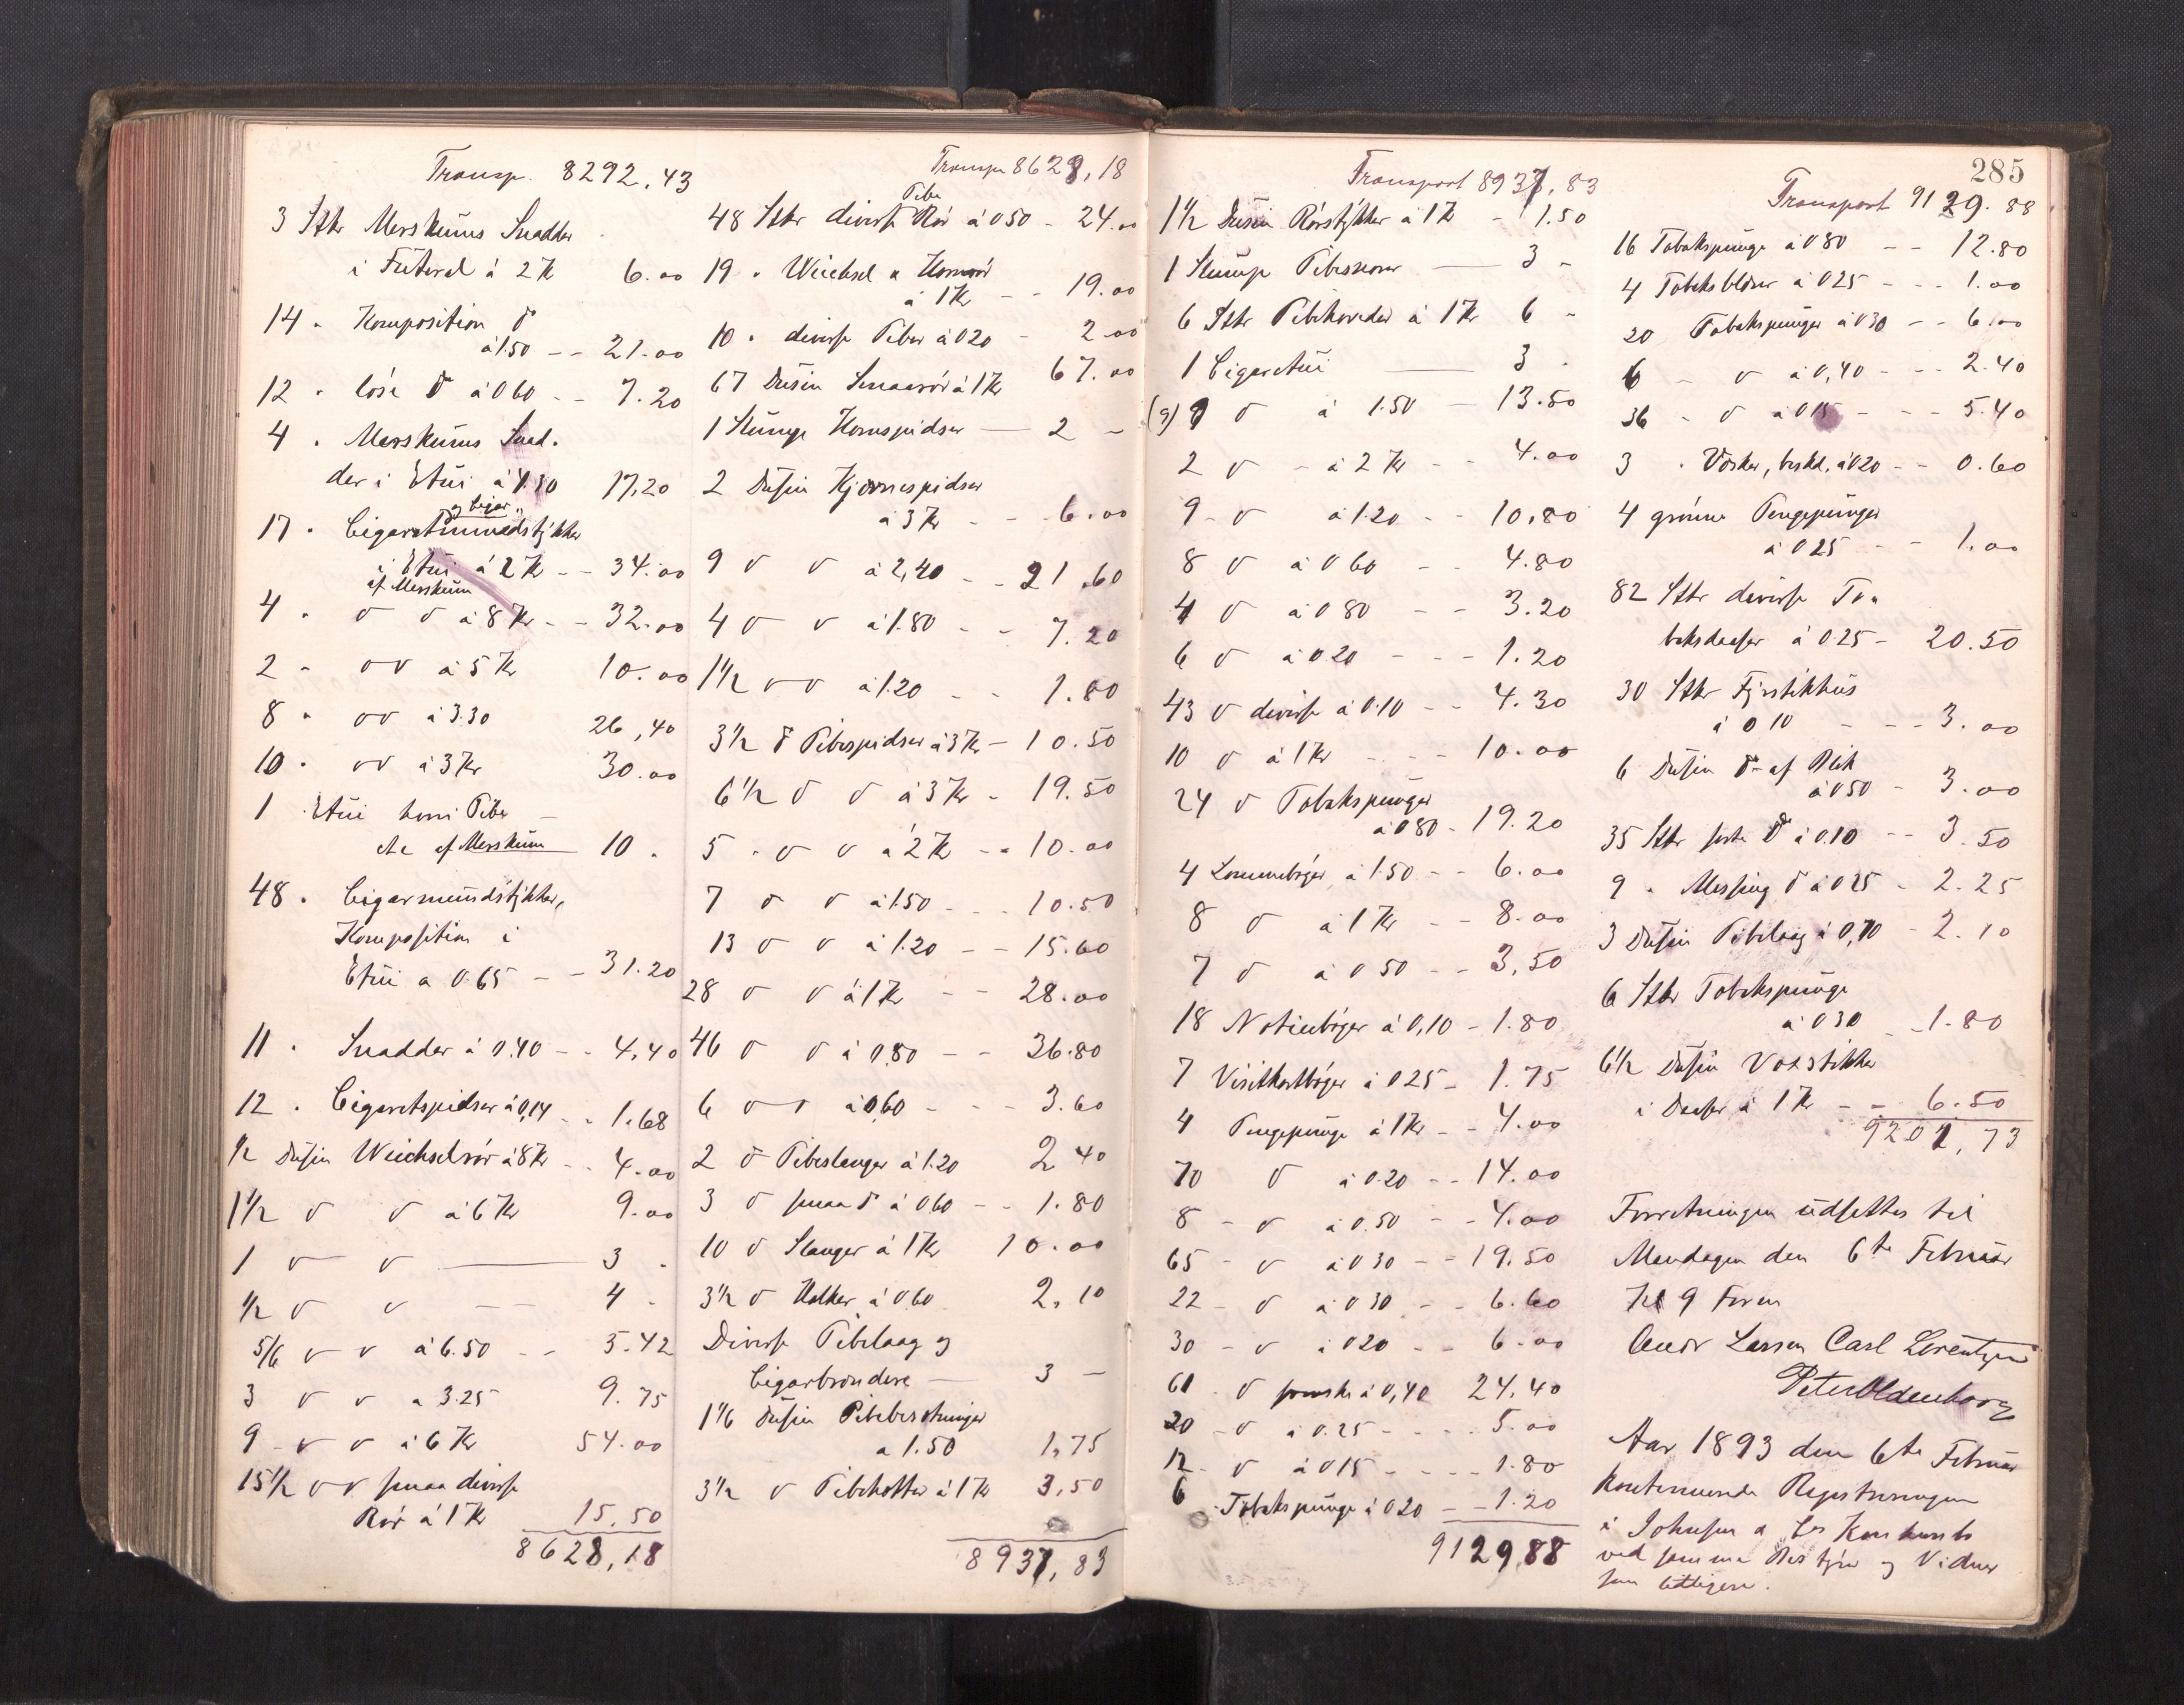 Transp. 8292,43
3 Stkr Merskums Snadder
i Futeral á 2 Kr 6.00
14 " Komposition do
á 1.50 - - 21.00
12 " löse do á 0 60 - - 7.20
4 " Merskums Snad-
der i Etui á 4.30 17,20
og Cigar
17 " Cigaretmundstykker
i Etui á 2 Kr - - 34.00
af Merskum
4 " do do á 8 Kr - - 32.00
2 " do do á 5 Kr 10.00
8 " do do á 3.30 26,40
10 " do do á 3 Kr 30.00
1 Etui hvori Pibe
etc af Merskum 10 "
48 " Cigarmundstykker,
Komposition i
Etui a 0.65 - - 31.20
11 " Snadder á 0.40 - - 4,40
12 " Cigaretspidser á 0,14 - - 1.68
1/2 Dusin Weichselrör á 8 Kr - - 4.00
1 1/2 do do á 6 Kr 9.00
1 do do 3 "
1/2 do do - - 4 "
5/6 do do á 6.50 - - 5.42
3 do do a 3.25 9.75
9 do do á 6 Kr 54.00
15 1/2 do do smaa diverse
Rör á 1 Kr 15.50
8628,18
Transp 8628,18
Pibe
48 Stkr diverse Rör á 0 50 - 24.00
19 " Weichsel & Hornrör
á 1 Kr - - 19.00
10 " diverse Piber á 0 20 - 2.00
67 Dusin Smaarör á 1 Kr 67.00
1 Slump Hornspidser - 2 -
2 Dusin Hjornespidser
á 3 Kr - - 6.00
9 do do á 2,40 - - 21.60
4 do do á 1.80 - - 7.20
1 1/2 do do á 1.20 - - 1.80
3 1/2 do Pibespidser á 3 Kr - 10.50
6 1/2 do do á 3 Kr - 19.50
5 " do do á 2 Kr - - 10.00
7 do do á 1.50 - - 10.50
13 do do á 1.20 - - 15.60
28 do do á 1 Kr - - 28.00
46 do do á 0,80 - - 36.80
6 do do á 0,60 - - - 3.60
2 do Pibeslanger á 1.20 2 40
3 do smaa do á 0 60 - - 1.80
10 do Slanger á 1 Kr 10.00
3 1/2 do Kolker á 0,60 2.10
Diverse Pibelaag og
Cigarbrændere - 3 -
1 1/6 Dusin Pibebesætninger
a 1.50 1,75
3 1/2 do Pibehatter á 1 Kr 3,50
8937,83
Transport 8937,83
1 1/2 Dusin Rörstykker á 1 Kr - 1.50
1 Slump Pibesnorer - 3 -
6 Stkr Pibehoveder á 1 Kr 6 -
1 Cigaretui - 3 "
(9) 9 do á 1.50 - 13.50
2 do - á 2 Kr - - 4.00
9 - do á 1.20 - - 10.80
8 do á 0 60 - - 4.80
4 do á 0 80 - - 3.20
6 do á 0 20 - - - 1.20
43 do diverse á 0.10 - - 4.30
10 do á 1 Kr - - - 10.00
24 do Tobakspunger
á 0 80 - 19.20
4 Lommebøger á 1.50 - - 6.00
8 do á 1 Kr - - 8.00
7 do á 0 50 - - 3,50
18 Notisbøger á 0,10 - 1.80
7 Visitkortbøger á 0 25 - 1.75
4 Pengepunge á 1 Kr - - 4.00
70 do á 0.20 - - 14.00
8 - do á 0.50 - - 4.00
65 - do á 0 30 - - 19.50
22 - do á 0 30 - - 6.60
30 - do á 0 20 - - 6.00
61 - do á 0,40 24,40
20 - do á 0.25 - - - - 5.00
12 - do á 0 15 - - - - 1.80
6 Tobakspunge á 0 20 - - 1.20
9129,88
285
Transport 9129.88
16 Tobakspunge á 0 80 - - 12.80
4 Tobaksblærer á 0 25 - - - 1.00
20 Tobakspunger á 0 30 - - 6.00
6 - do á 0,40 - - - 2.40
36 - do á 0 15 - - - 5.40
3 " Vasker, beskd. á 0 20 - - 0.60
4 grönne Pengepunger
á 0 25 - - 1.00
82 Stkr diverse To-
baksdaaser á 0 25 - 20.50
30 Stkr Fyrstikhus
á 0 10 - - - 3.00
6 Dusin do af Blik
á 0 50 - 3.00
35 Stkr sorte do á 0.10 - - 3.50
9 " Messing do á 0 25 - 2.25
3 Dusin Pibelaag á 0,70 - 2.10
6 Stkr Tobakspunge
á 0 30 - 1.80
6 1/2 Dusin Voxstikker
i Daaser á 1 Kr - - 6.50
9201,73
Forretningen udsettes til
Mandagen den 6te Februar
Kl 9 Form
Andr Larsen Carl Lorentzen
Peter Oldenborg
Aar 1893 den 6te Februar
kontinuerede Registreringen
i Johnsen & Cos Konkursbo
ved samme Bestyrer og Vidner
som tidligere.